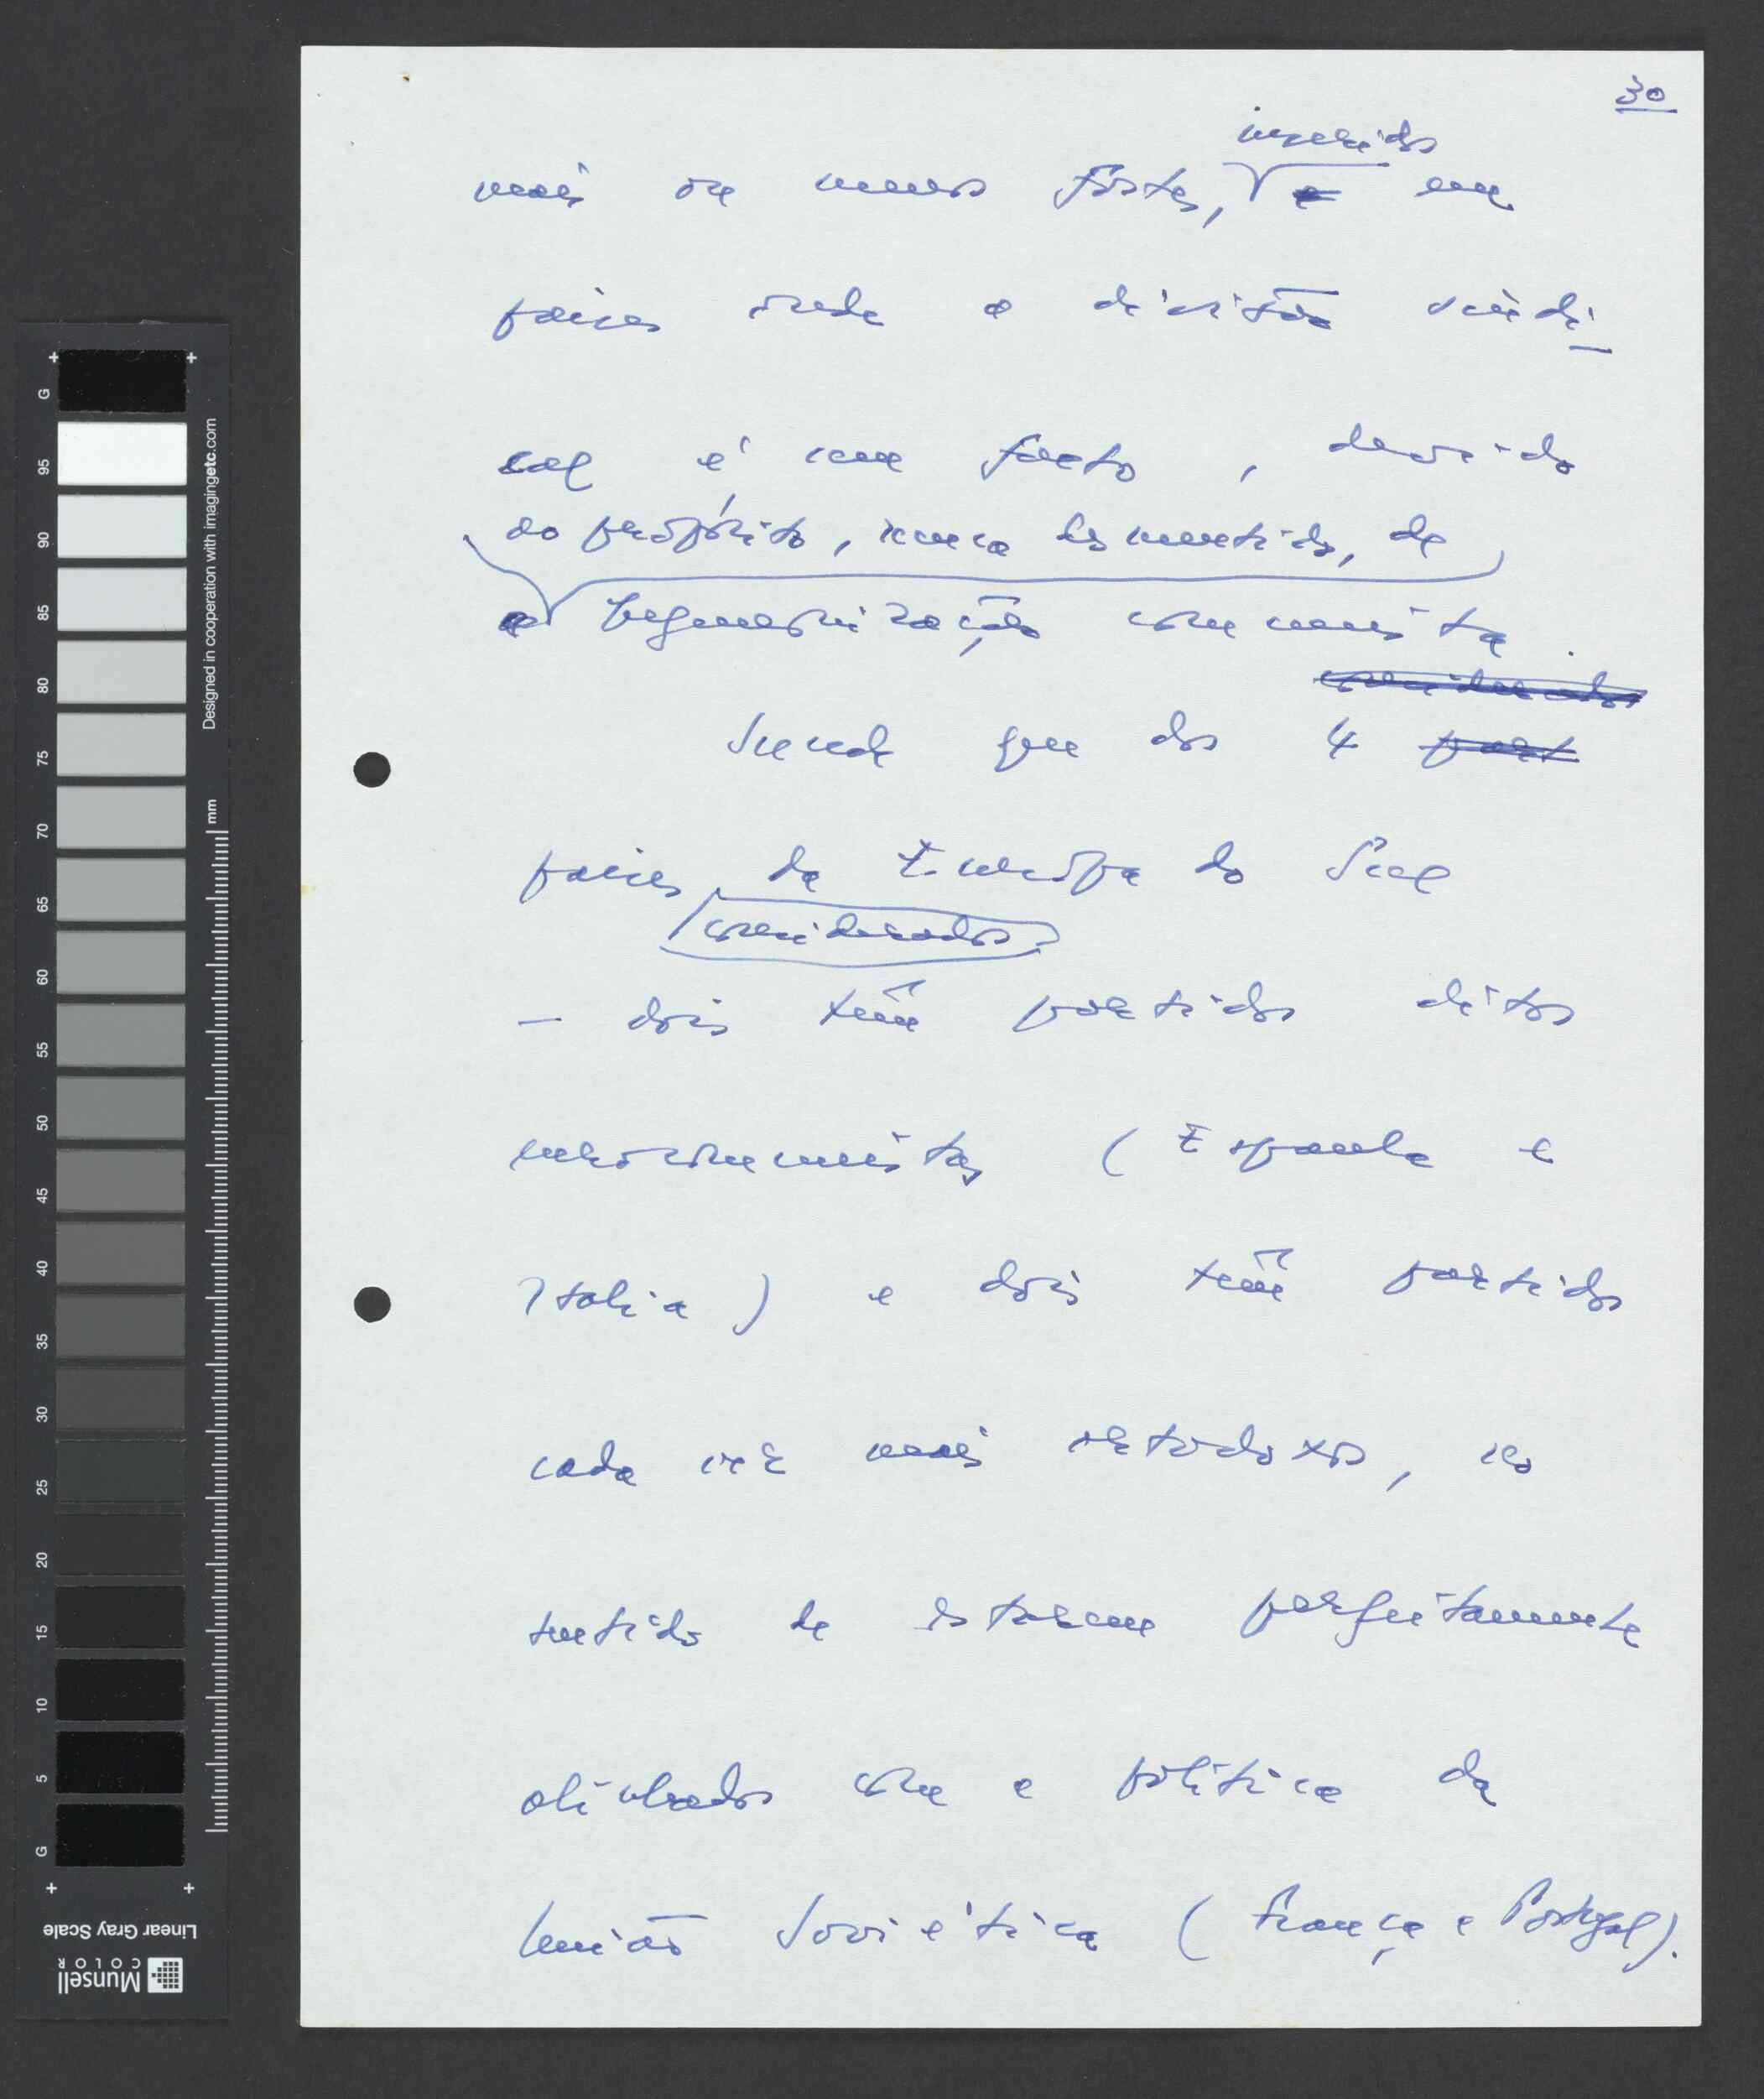 30
inseridos
mais ou menos fortes, e em
países onde a divisão sindi-
cal é um facto, devido
ao propósito, nunca desmentido, de
a hegemonização comunista.
considerados
Sucede que dos 4 part
países da Europa do Sul
considerados
— dois têm partidos ditos
eurocomunistas (Espanha e
Itália) e dois têm partidos
cada vez mais ortodoxos, no
sentido de estarem perfeitamente
alinhados com a política da
União Soviética (França e Portugal).
G
95
90
85
80
75
70
65
60
55
50
45
40
35
30
25
20
15
10
5
G
Designed in cooperation with imagingetc.com
mm
Linear Gray Scale
Munsell
COLOR